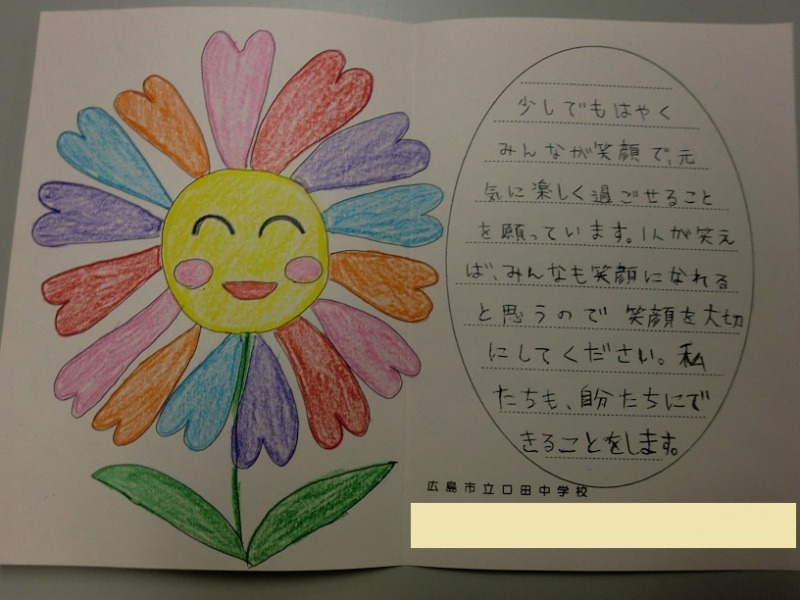 少しでもはやく
みんなが笑顔で、元
気に楽しく過ごせること
を願っています。1人が笑え
ば、みんなも笑顔になれる
と思うので 笑顔を大切
にしてください。私
たちも、自分たちにで
きることをします。
広島市立口田中学校